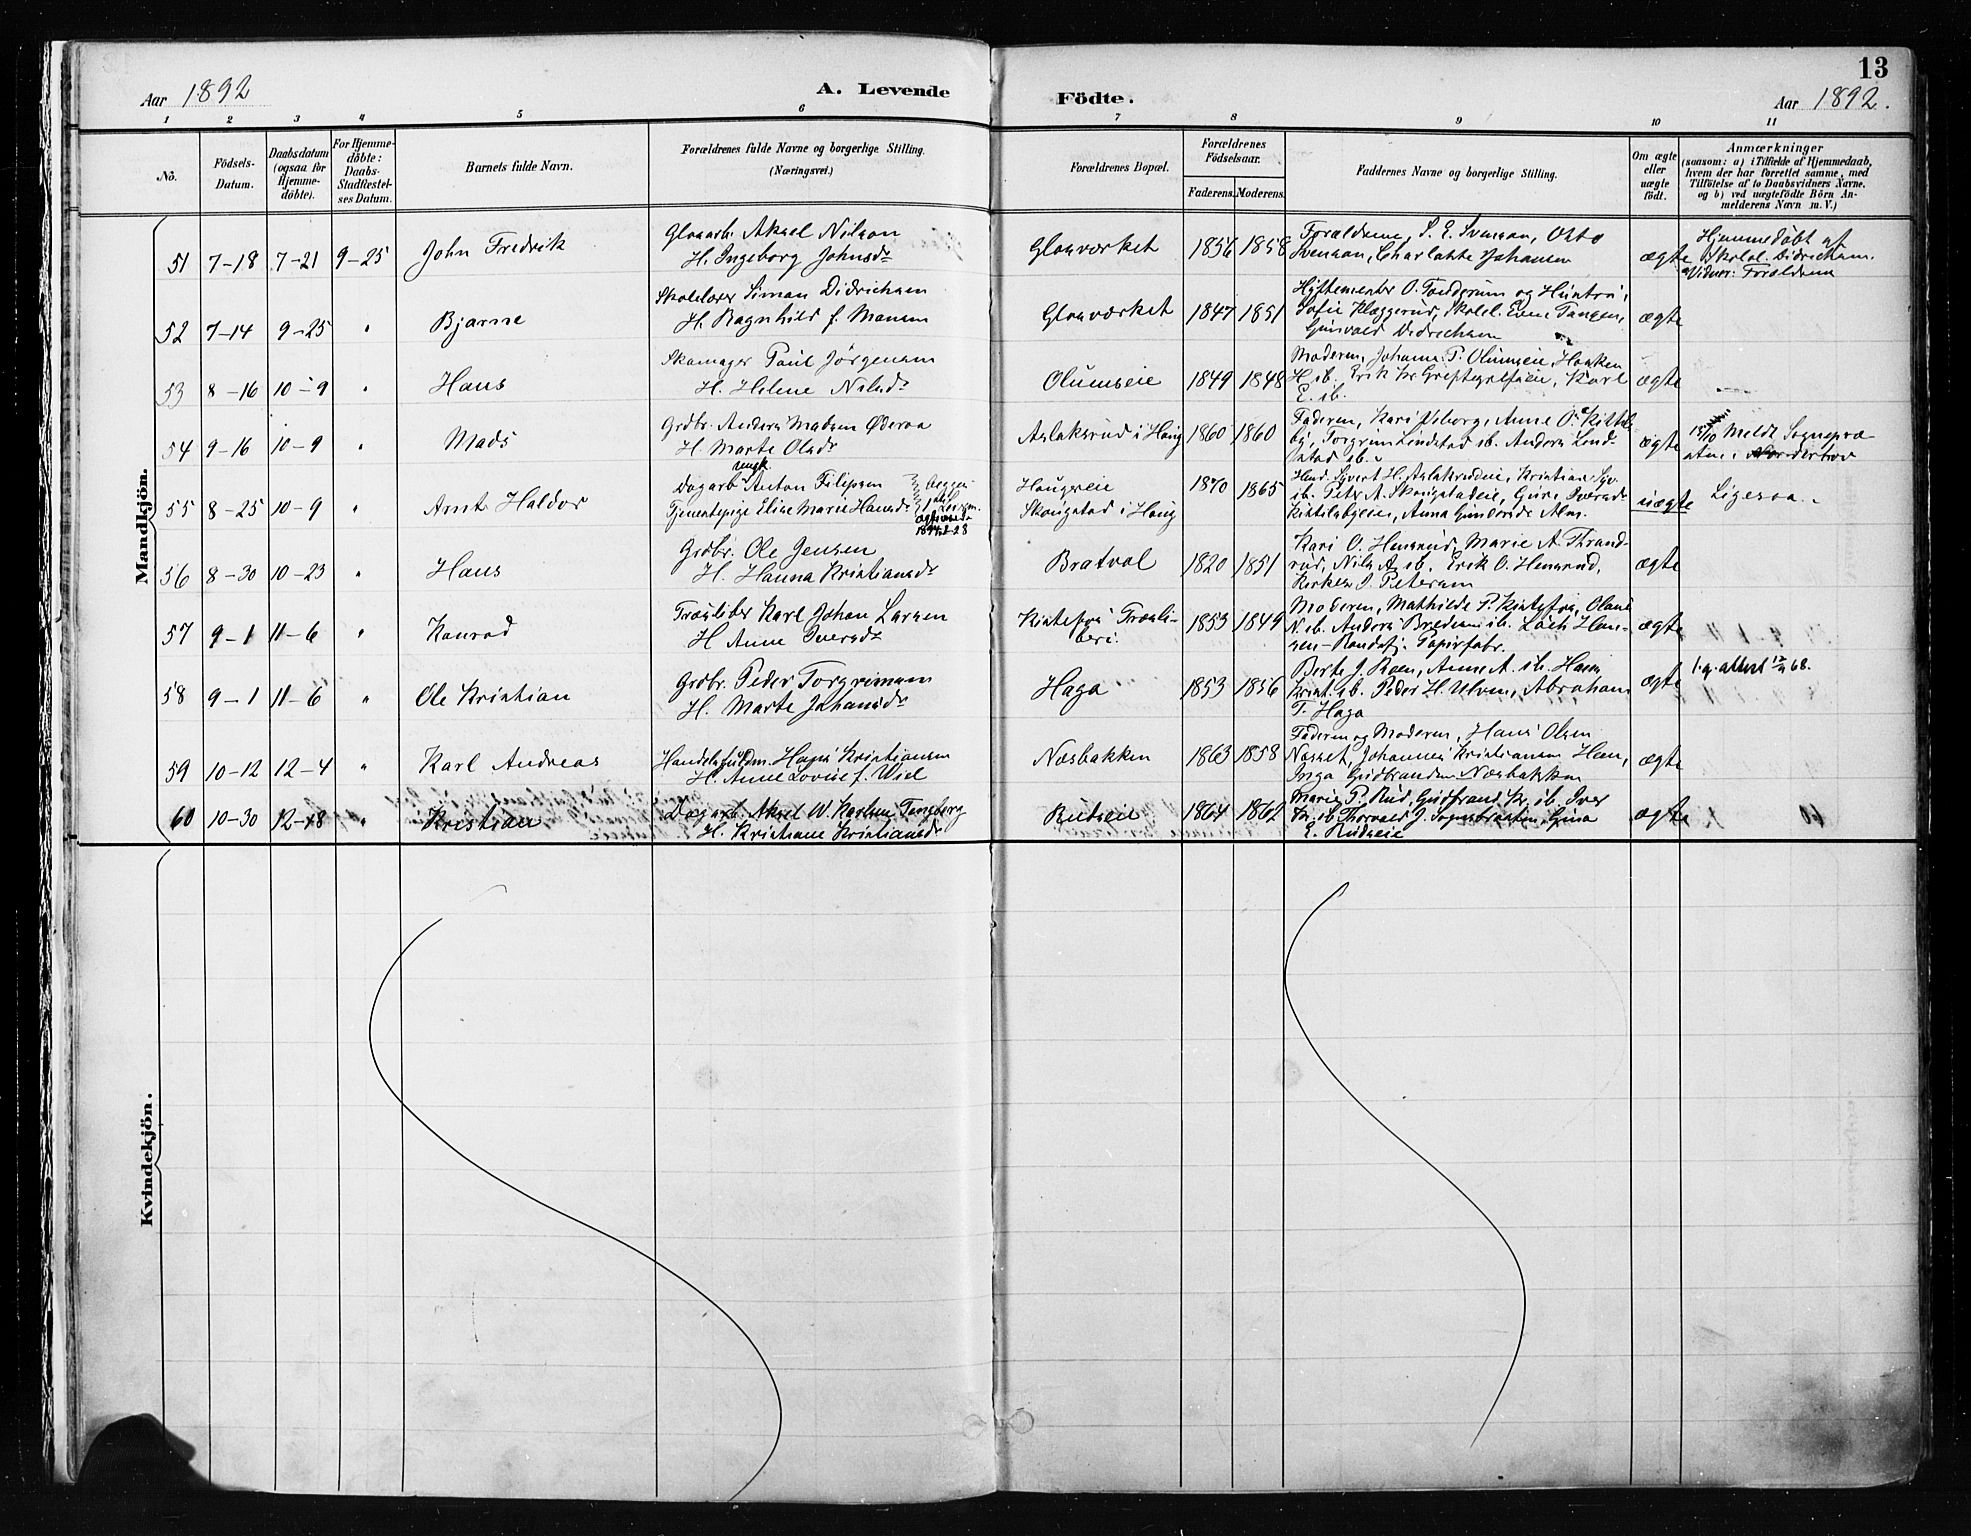 13
Aar 1892
A. Levende
Födte.
Aar 1892.
1 2 3 4 5 6 7 8 9 10 11
No.
Födsels-
Datum.
Daabsdatum
(ogsaa for
Hjemme-
döbte).
For Hjemme-
döbte:
Daabs-
Stadfæstel-
ses Datum.
Barnets fulde Navn.
Forældrenes fulde Navne og borgerlige Stilling.
(Næringsvei.)
Forældrenes Bopæl.
Forældrenes
Födselsaar.
Faderens.
Moderens.
Faddernes Navne og borgerlige Stilling.
Om ægte
eller
uægte
födt.
Anmærkninger
(saasom: a) i Tilfælde af Hjemmedaab,
hvem der har forrettet samme, med
Tilföielse af to Daabsvidners Navne,
og b) ved uægtefödte Börn An-
melderens Navn m. V.)
Mandkjön.
51 7-18 7-21 9-25 John Fredrik
Glasarb. Aksel Nilson
H. Ingeborg Johnsdr
Glasværket 1856 1858
Forældrene, S. E. Svensson, Otto
Svensson, Charlotte Johansen
ægte
Hjemmedöbt af
Skolel. Didrichsen.
Vidner: Forældrene
52 7-14 9-25 " Bjarne
Skolelærer Simon Didrichsen
H. Ragnhild f. Monsen
Glasværket 1847 1851
Sofie Klæggerud, Skolel. Even Tangen,
Gunvald Didrichsen
ægte
53 8-16 10-9 " Hans
Skomager Paul Jørgensen
H. Helene Nilsdr
Olumseie 1849 1848
Moderen, Johanne P. Olumseie, Haaken
ægte
54 9-16 10-9 " Mads
Grdbr. Anders Madsen Øderaa
H. Marte Olsdr
Aslaksrud i Haug 1860 1860
Faderen, Kari Viborg, Anne O. Kittels
by, Torgrim Lindstad ib. Anders Lind-
stad ib.
ægte
15/10 Meldt Sognepræ
sten i Norderhov
55 8-25 10-9 " Arnt Haldor
Dagarb. Anton Filipsen
Tjenestepige Elise Marie Hansdr
Haugseie
Skougstad i Haug
1870 1865
ib. Peter A. Skougstadeie, Guri Iversdr
Kittelsbyeie, Anna Gundersdr Alm.
uægte
Ligesaa.
56 8-30 10-23 " Hans
Grdbr. Ole Jensen
H. Hanna Kristiansdr
Bratval 1820 1851
Kari O. Hensrud, Marie A. Strand-
rud, Nils A. ib. Erik O. Hensrud,
Kirkes. J. Petersen
ægte
57 9-1 11-6 " Konrad
Træsliber Karl Johan Larsen
H Anne Iversdr
Kistefos Træsli-
beri.
1853 1849
Moderen, Mathilde P. Kistefos, Olaus
N. ib. Anders Bredesen ib. Lars Han-
sen-Randsfj. Papirfabr.
ægte
58 9-1 11-6 " Ole Kristian
Grdbr. Peder Torgrimsen
H. Marte Johansdr
Haga 1853 1856
Berte J. Roen, Anne A. ib. Hans
Krist. ib. Peder H. Ulven, Abraham
T. Haga
ægte
59 10-12 12-4 " Karl Andreas
Handelsfuldm. Hans Kristiansen
H. Anne Lovise f. Wiel
Næsbakken 1863 1858
Faderen og Moderen, Hans Olsen
Næsset, Johannes Kristiansen Hen,
Inga Gudbrandsen Næsbakken
ægte
60 10-30 12-18 " Kristian
Dagarb. Aksel W. Karlsen Tangberg
H. Kristiane Kristiansdr
Rudseie 1864 1862
Marie P. Rud, Gudbrand Kr. ib. Iver
Kr. ib. Thorvald J. Sognebraaten, Gina
E. Rudseie
ægte
Kvindekjön.